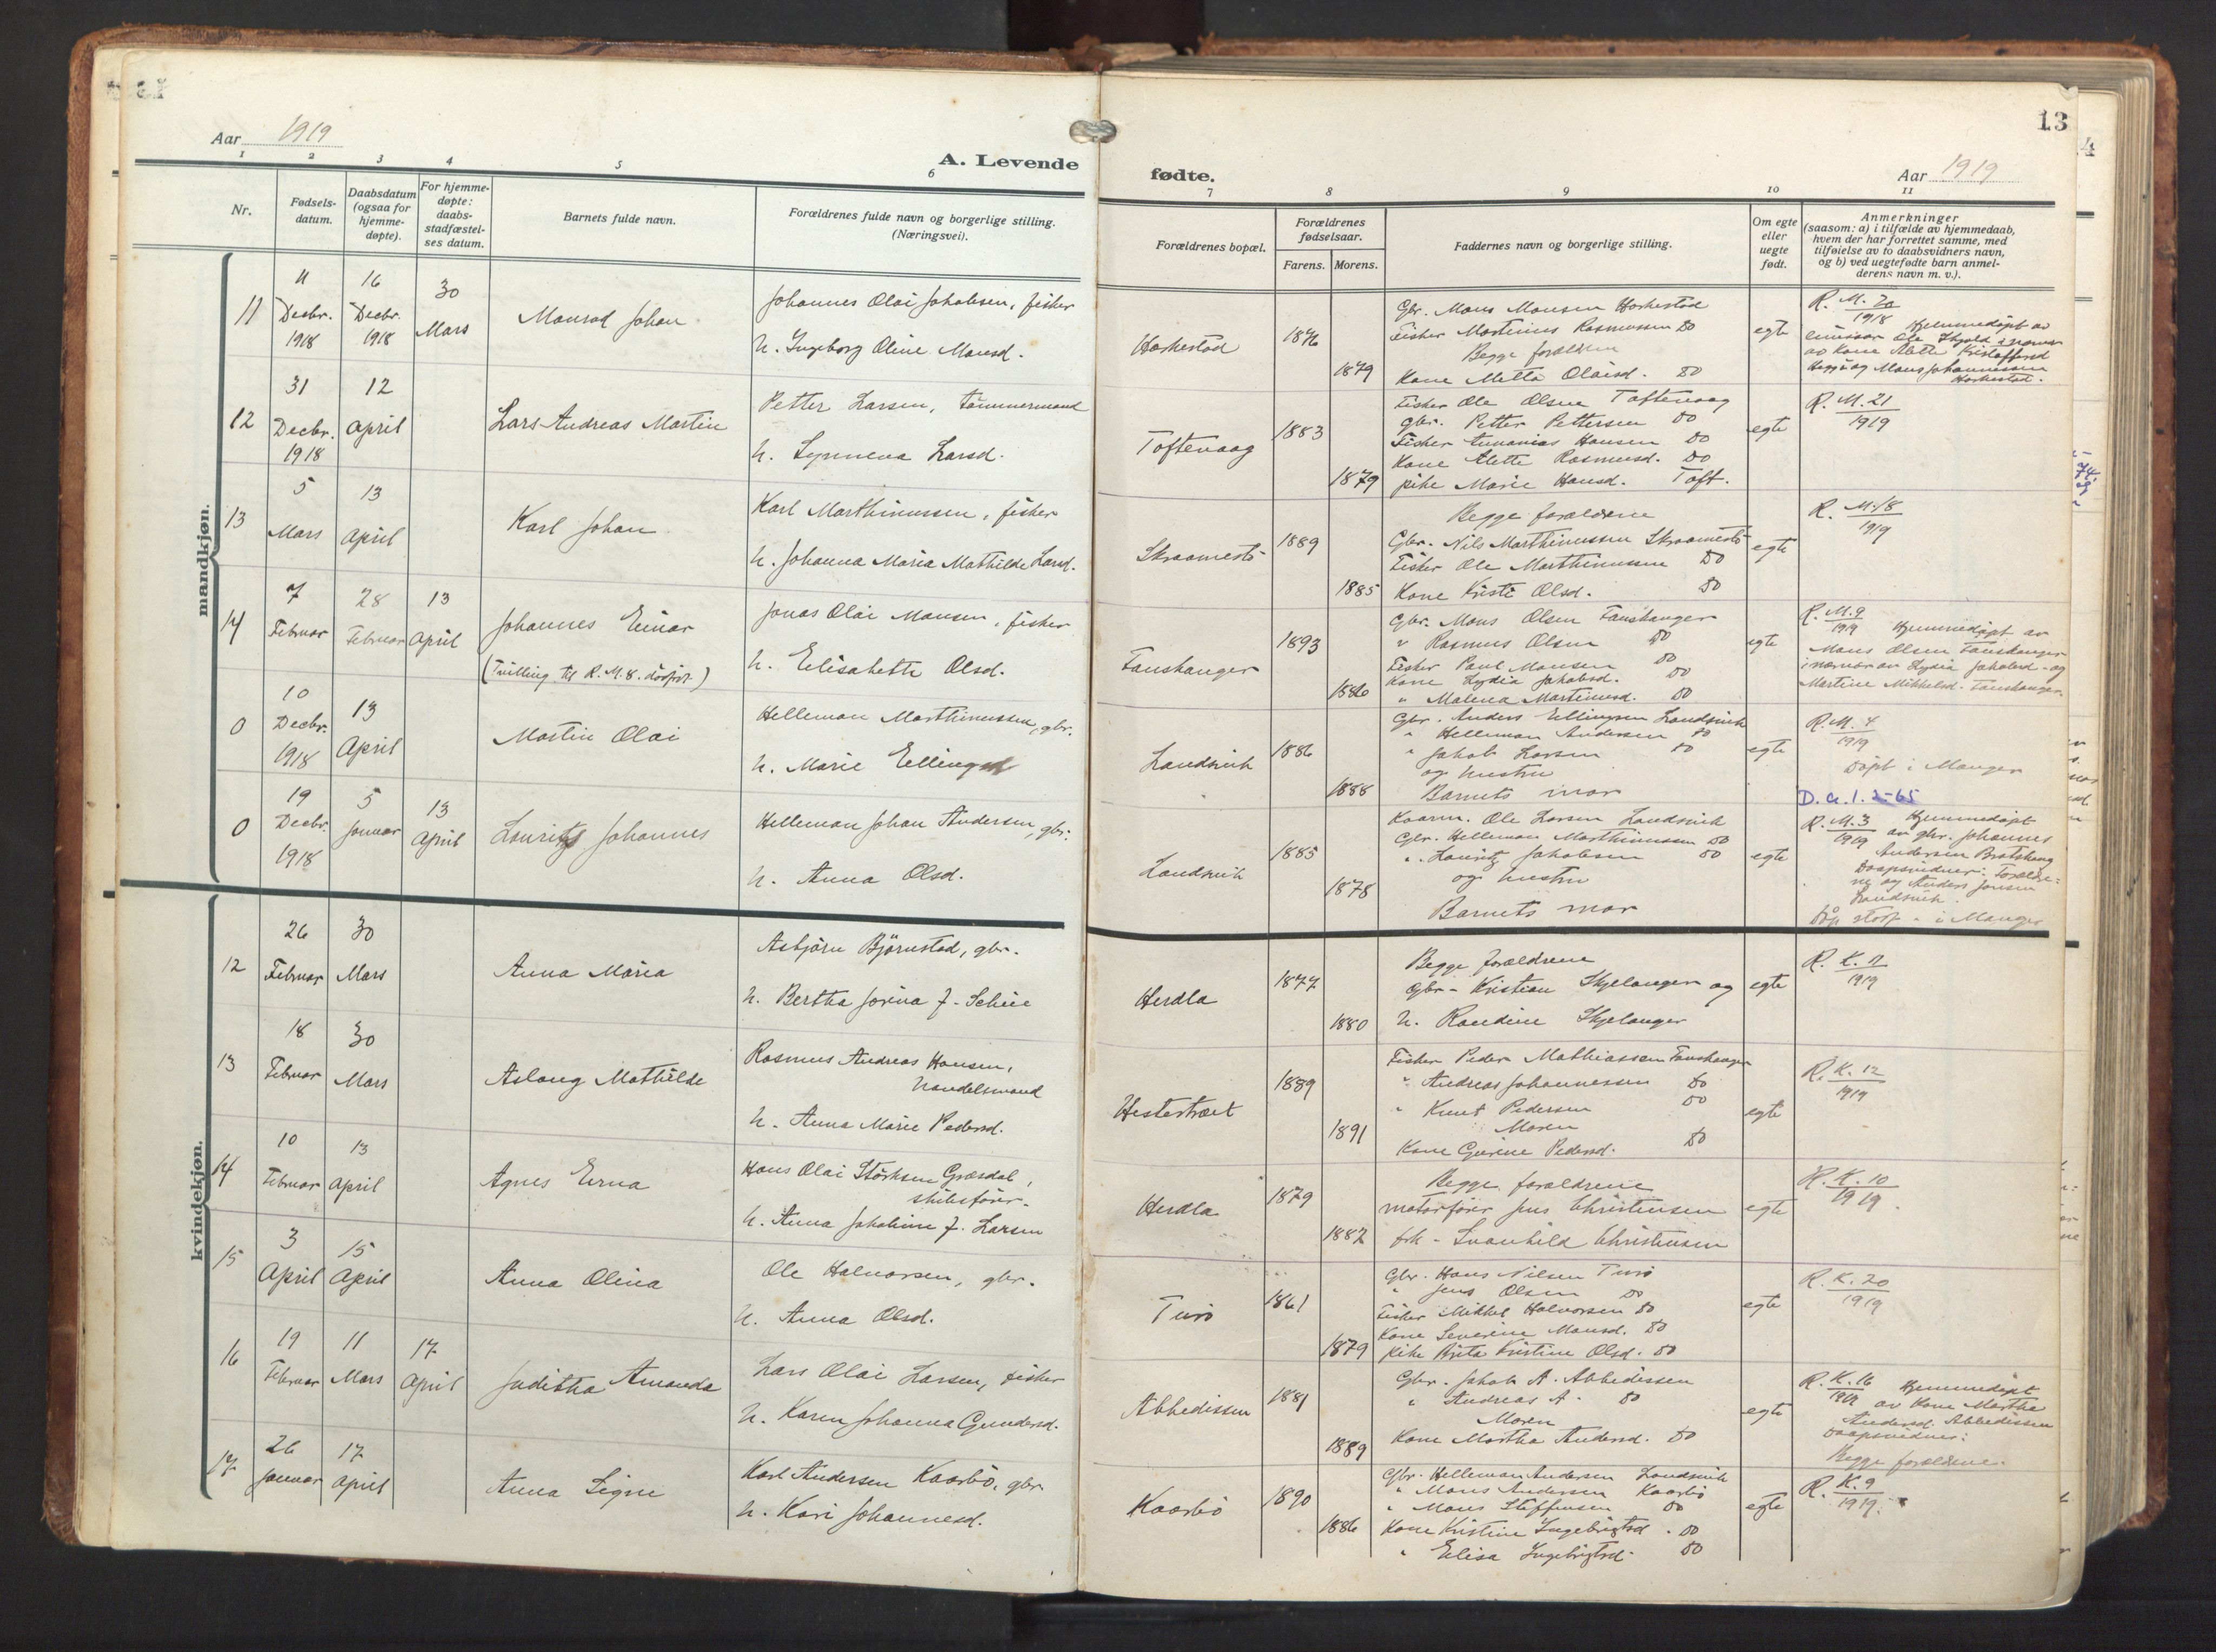 Aar 1919
A. Levende
1 2 3 4 5 6
Nr.
Fødsels-
datum.
Daabsdatum
(ogsaa for
hjemme-
døpte).
For hjemme-
døpte:
daabs-
stadfæstel-
ses datum.
Barnets fulde navn.
Forældrenes fulde navn og borgerlige stilling.
(Næringsvei).
mandkjøn.
11
4
Decbr.
1918
16
Decbr.
1918
30
Mars
Mansod Johan
Johannes Olai Jakobsen, fisker
h. Ingeborg Oline Mansd.
12
31
Decbr.
1918
12
April
Lars Andreas Martin
Petter Larsen, tømmermand
h. Synneva Larsd.
13
5
Mars
13
April
Karl Johan
Karl Marthinussen, fisker
h. Johanna Maria Mathilde Larsd.
14
7
Februar
28
Februar
13
April
Johannes Einar
(Tvilling til R. M. 8. dødfødt.)
Jonas Olai Monsen, fisker
h. Elisabeth Olsd.
0
10
Decbr.
1918
13
April
Martin Olai
Helleman Marthinussen, gbr.
h. Marie Ellingsd
0
19
Decbr.
1918
5
Januar
13
April
Lauritz Johannes
Helleman Johan Andersen, gbr.
h. Anna Olsd.
kvindekjøn.
12
26
Februar
30
Mars
Anna Maria
Asbjørn Bjørnstad, gbr.
h. Bertha Jorina f. Schie
13
18
Februar
30
Mars
Aslaug Mathilde
Rasmus Andreas Hansen,
handelsmand
h. Anna Marie Pedersd.
14
10
Februar
13
April
Agnes Erna
Hans Olai Størksen Græsdal,
skibsfører.
h. Anna Jakobine f. Larsen
15
3
April
15
April
Anna Olina
Ole Halvorsen, gbr.
h. Anna Olsd.
16
19
Februar
11
Mars
17
April
Juditha Amanda
Lars Olai Larsen, fisker
h. Karen Johanna Gundersd.
17
26
Januar
17
April
Anna Signe
Karl Andersen Kaarbø, gbr
h. Kari Johannesd.
13
fødte.
Aar 1919
7 8 9 10 11
Forældrenes bopæl.
Forældrenes
fødselsaar.
Farens. Morens.
Faddernes navn og borgerlige stilling.
Om egte
eller
uegte
født.
Anmerkninger
(saasom: a) i tilfælde av hjemmedaab,
hvem der har forrettet samme, med
tilføielse av to daabsvidners navn,
og b) ved uegtefødte barn anmel-
derens navn m. v.).
Haskestad
1876
1879
Gbr. Mons Monsen Haskestad
Fisker Martinius Rasmussen do
Begge forældrene
Kone Metta Olaisd. do
egte
R. M. 20
1918 Hjemmedøpt av
Ole Skjold i nærvær
av Kone Alette Kristoffersd
og Mons Johannessen
Haskestad.
Toftevaag
1883
1879
Fisker Ole Olsen Toftevaag
gbr. Petter Pettersen do
Fisker Annanias Hansen do
Kone Alette Rasmusd. do
pike Marie Hansd. Toft.
egte
R. M. 21
1919
Skraamestø
1889
1885
Begge forældrene
Gbr. Nils Marthinussen Skraamestø
Fisker Ole Marthinussen do
Kone Kristi Olsd. do
egte
R. M. 18
1919
Fauskanger
1893
1886
Gbr. Mons Olsen Fauskanger
" Rasmus Olsen do
Fisker Paul Monsen do
Kone Lydia Jakobsd. do
" Malena Martinusd. do
egte
R. M. 9
1919 Hjemmedøpt av
Mons Olsen Fauskanger
i nærvær av Lydia Jakobsd. og
Martine Mikkelsd. Fauskanger.
Landsvik
1886
1888
Gbr. Anders Ellingsen Landsvik
" Helleman Andersen do
" Jakob Larsen do
og hustru
Barnets mor
egte
R. M. 4
1919
Døpt i Manger
Landsvik
1885
1878
Kaarm. Ole Larsen Landsvik
Gbr. Helleman Marthinussen do
" Lauritz Jakobsen do
og hustru
Barnets mor
egte
D. a. 1. 2-65
R. M. 3
1919 Hjemmedøpt
av gbr. Johannes
Andersen Bratshaug
Daapsvidner: Forældre-
ne og Anders Jonsen
Landsvik.
Dåp stadf. i Manger
Herdla
1877
1880
Begge forældrene
Gbr. Kristian Skjelanger og
h. Randine Skjelanger
egte
R. K. 11
1919
Hestetræet
1889
1891
Fisker Peder Mathiassen Fauskanger
" Andreas Johannessen do
" Knut Pedersen do
Moren
Kone Gurine Pedersd. do
egte
R. K. 12
1919
Herdla
1879
1882
Begge forældrene
motorfører Jens Christensen
frk. Svanhild Christensen
egte
R. K. 10
1919.
Turø
1861
1879
Gbr. Hans Nilsen Turø
" Jens Olsen do
Fisker Mikkel Halvorsen do
Kone Severine Monsd. do
pike Brita Kristine Olsd. do
egte
R. K. 20
1919
Abbedissen
1881
1889
Gbr. Jakob A. Abbedissen
" Andreas A. do
Moren
Kone Martha Andersd. do
egte
R. K. 16
1919 Hjemmedøpt
av Kone Martha
Andersd. Abbedissen
Daapsvidner:
Begge forældrene.
Kaarbø
1890
1886
Gbr. Helleman Andersen Landsvik
" Mons Andersen Kaarbø
" Mons Steffensen do
Kone Kristine Ingebrigtsd. do
" Elisa Ingebrigtsd. do
egte
R. K. 9
1919.